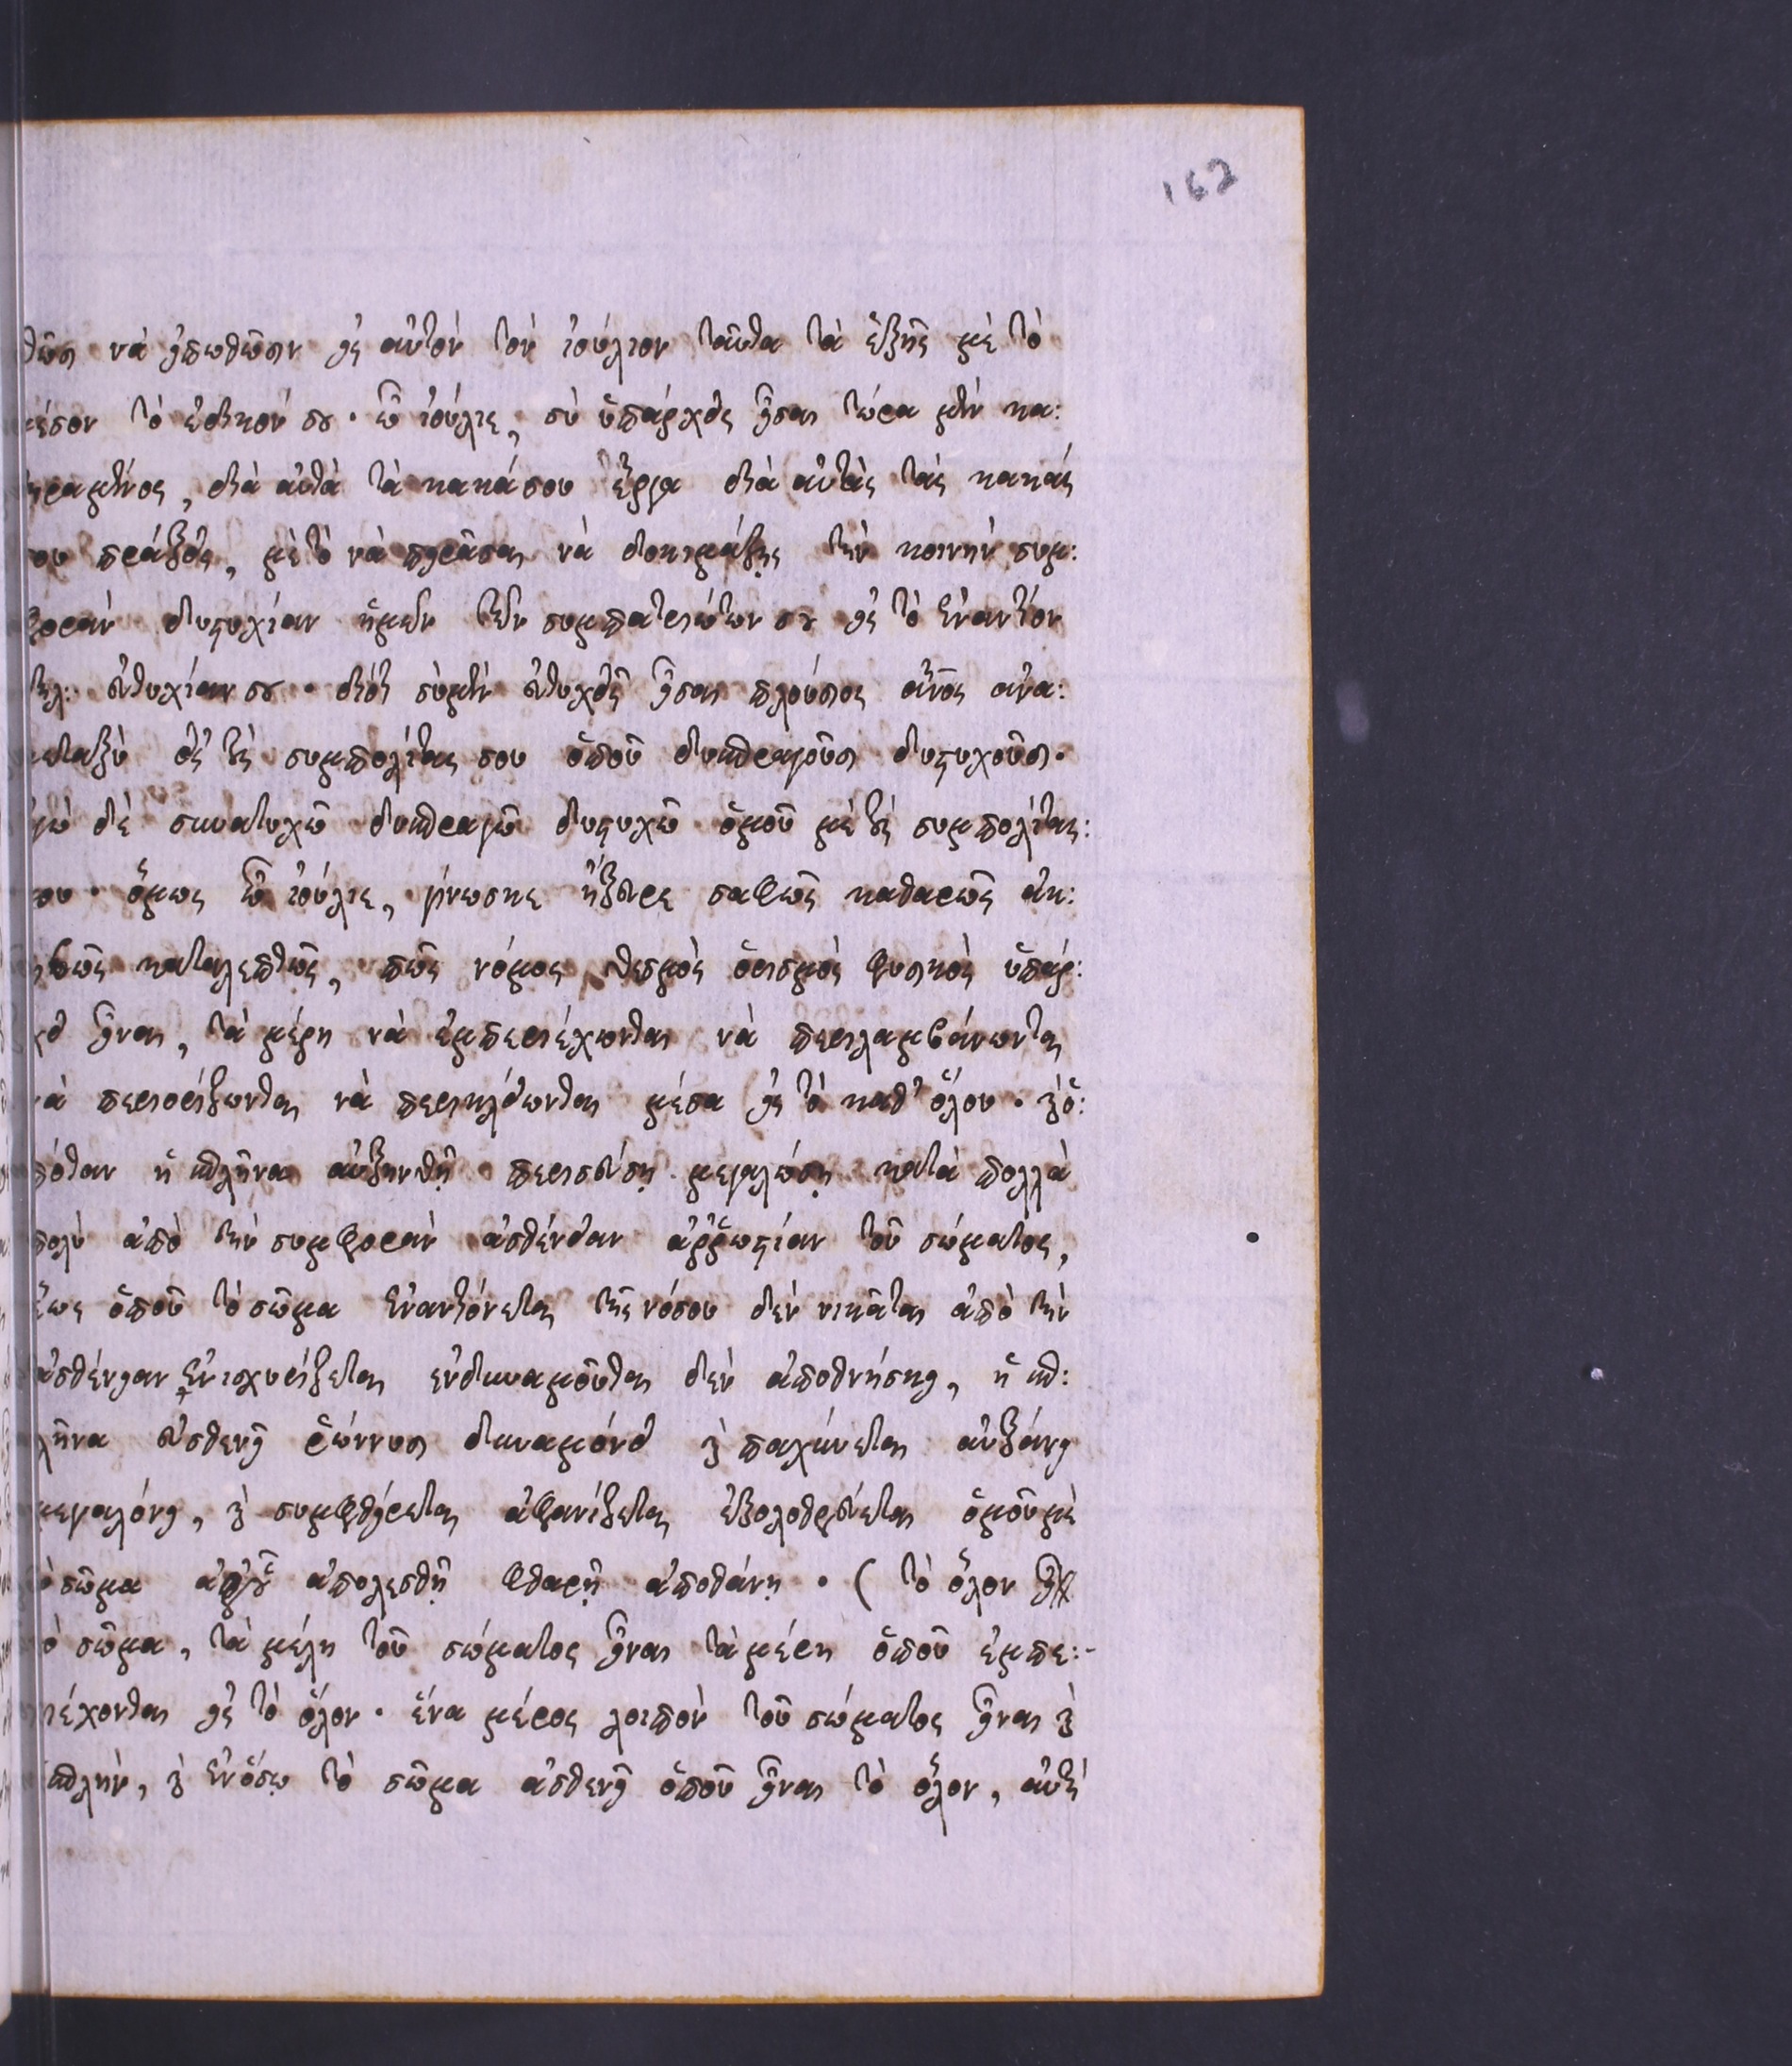 162
θῶσι νὰ εἰπωθῶσιν εἰς αὐτὸν τὸν ἰούλιον ταῦτα τὰ ἑξῆς μὲ τὸ
μέσον τὸ ἐδικόν σου· ὦ ἰούλιε, σὺ ὑπάρχεις εἶσαι τώρα μὲν κα:
τηραμένος, διὰ αὐτὰ τὰ κακά σου ἔργα διὰ αὐτὰς τὰς κακάς
σου πράξεις, μὲ τὸ νὰ πειρᾶσαι νὰ δοκιμάζῃς τὴν κοινὴν συμ:
φορὰν δυστυχίαν ἡμῶν τῶν συμπατριώτων σου εἰς τὸ ἐναντίον
εὐτυχίαν σου· διότι σὺ μὲν εὐτυχεῖς εἶσαι πλούσιος ἀνα:
μεταξὺ εἰς τοὺς συμπολίτας σου ὁποῦ δυσπραγοῦσι δυστυχοῦσι·
ἐγὼ δὲ συνατυχῶ δυσπραγῶ δυστυχῶ ὁμοῦ μὲ τοὺς συμπολίτας:
μου· ὅμως ὦ ἰούλιε, γίνωσκε ἤξευρε σαφῶς καθαρῶς ἀκ:
ριβῶς καταλεπτῶς, πῶς νόμος θεσμὸς ὁρισμὸς φυσικὸς ὑπάρ:
χει εἶναι, τὰ μέρη νὰ ἐμπεριέχωνται νὰ περιλαμβάνωνται
νὰ περιορίζωνται νὰ περικλείωνται μέσα εἰς τὸ καθ' ὅλου· καὶ ὁ:
πόταν ἡ σπλῆνα αὐξηνθῇ περισσεύσῃ μεγαλώσῃ κατὰ πολλὰ
πολὺ ἀπὸ τὴν συμφορὰν ἀσθένειαν ἀῤῥωστίαν τοῦ σώματος,
ἕως ὁποῦ τὸ σῶμα ἐναντιόνεται τῆς νόσου δὲν νικᾶται ἀπὸ τὴν
ἀσθένειαν ἐνισχυρίζεται ἐνδυναμοῦται δὲν ἀποθνήσκει, ἡ σπ:
λῆνα εὐσθενεῖ ῥώννυσι δυναμόνει καὶ παχύνεται αὐξάνει
μεγαλόνει, καὶ συμφθείρεται ἀφανίζεται ἐξολοθρεύεται ὁμοῦ μὲ
τὸ σῶμα ἀφ' οὗ ἀπολεσθῇ φθαρῇ ἀποθάνῃ · ( τὸ ὅλον εἶναι
τὸ σῶμα, τὰ μέλη τοῦ σώματος εἶναι τὰ μέρη ὁποῦ ἐμπε:-
ριέχονται εἰς τὸ ὅλον· ἕνα μέρος λοιπὸν τοῦ σώματος εἶναι καὶ
σπλήν, καὶ ἐνόσῳ τὸ σῶμα ἀσθενεῖ ὁποῦ εἶναι τὸ ὅλον, αὐτὸ